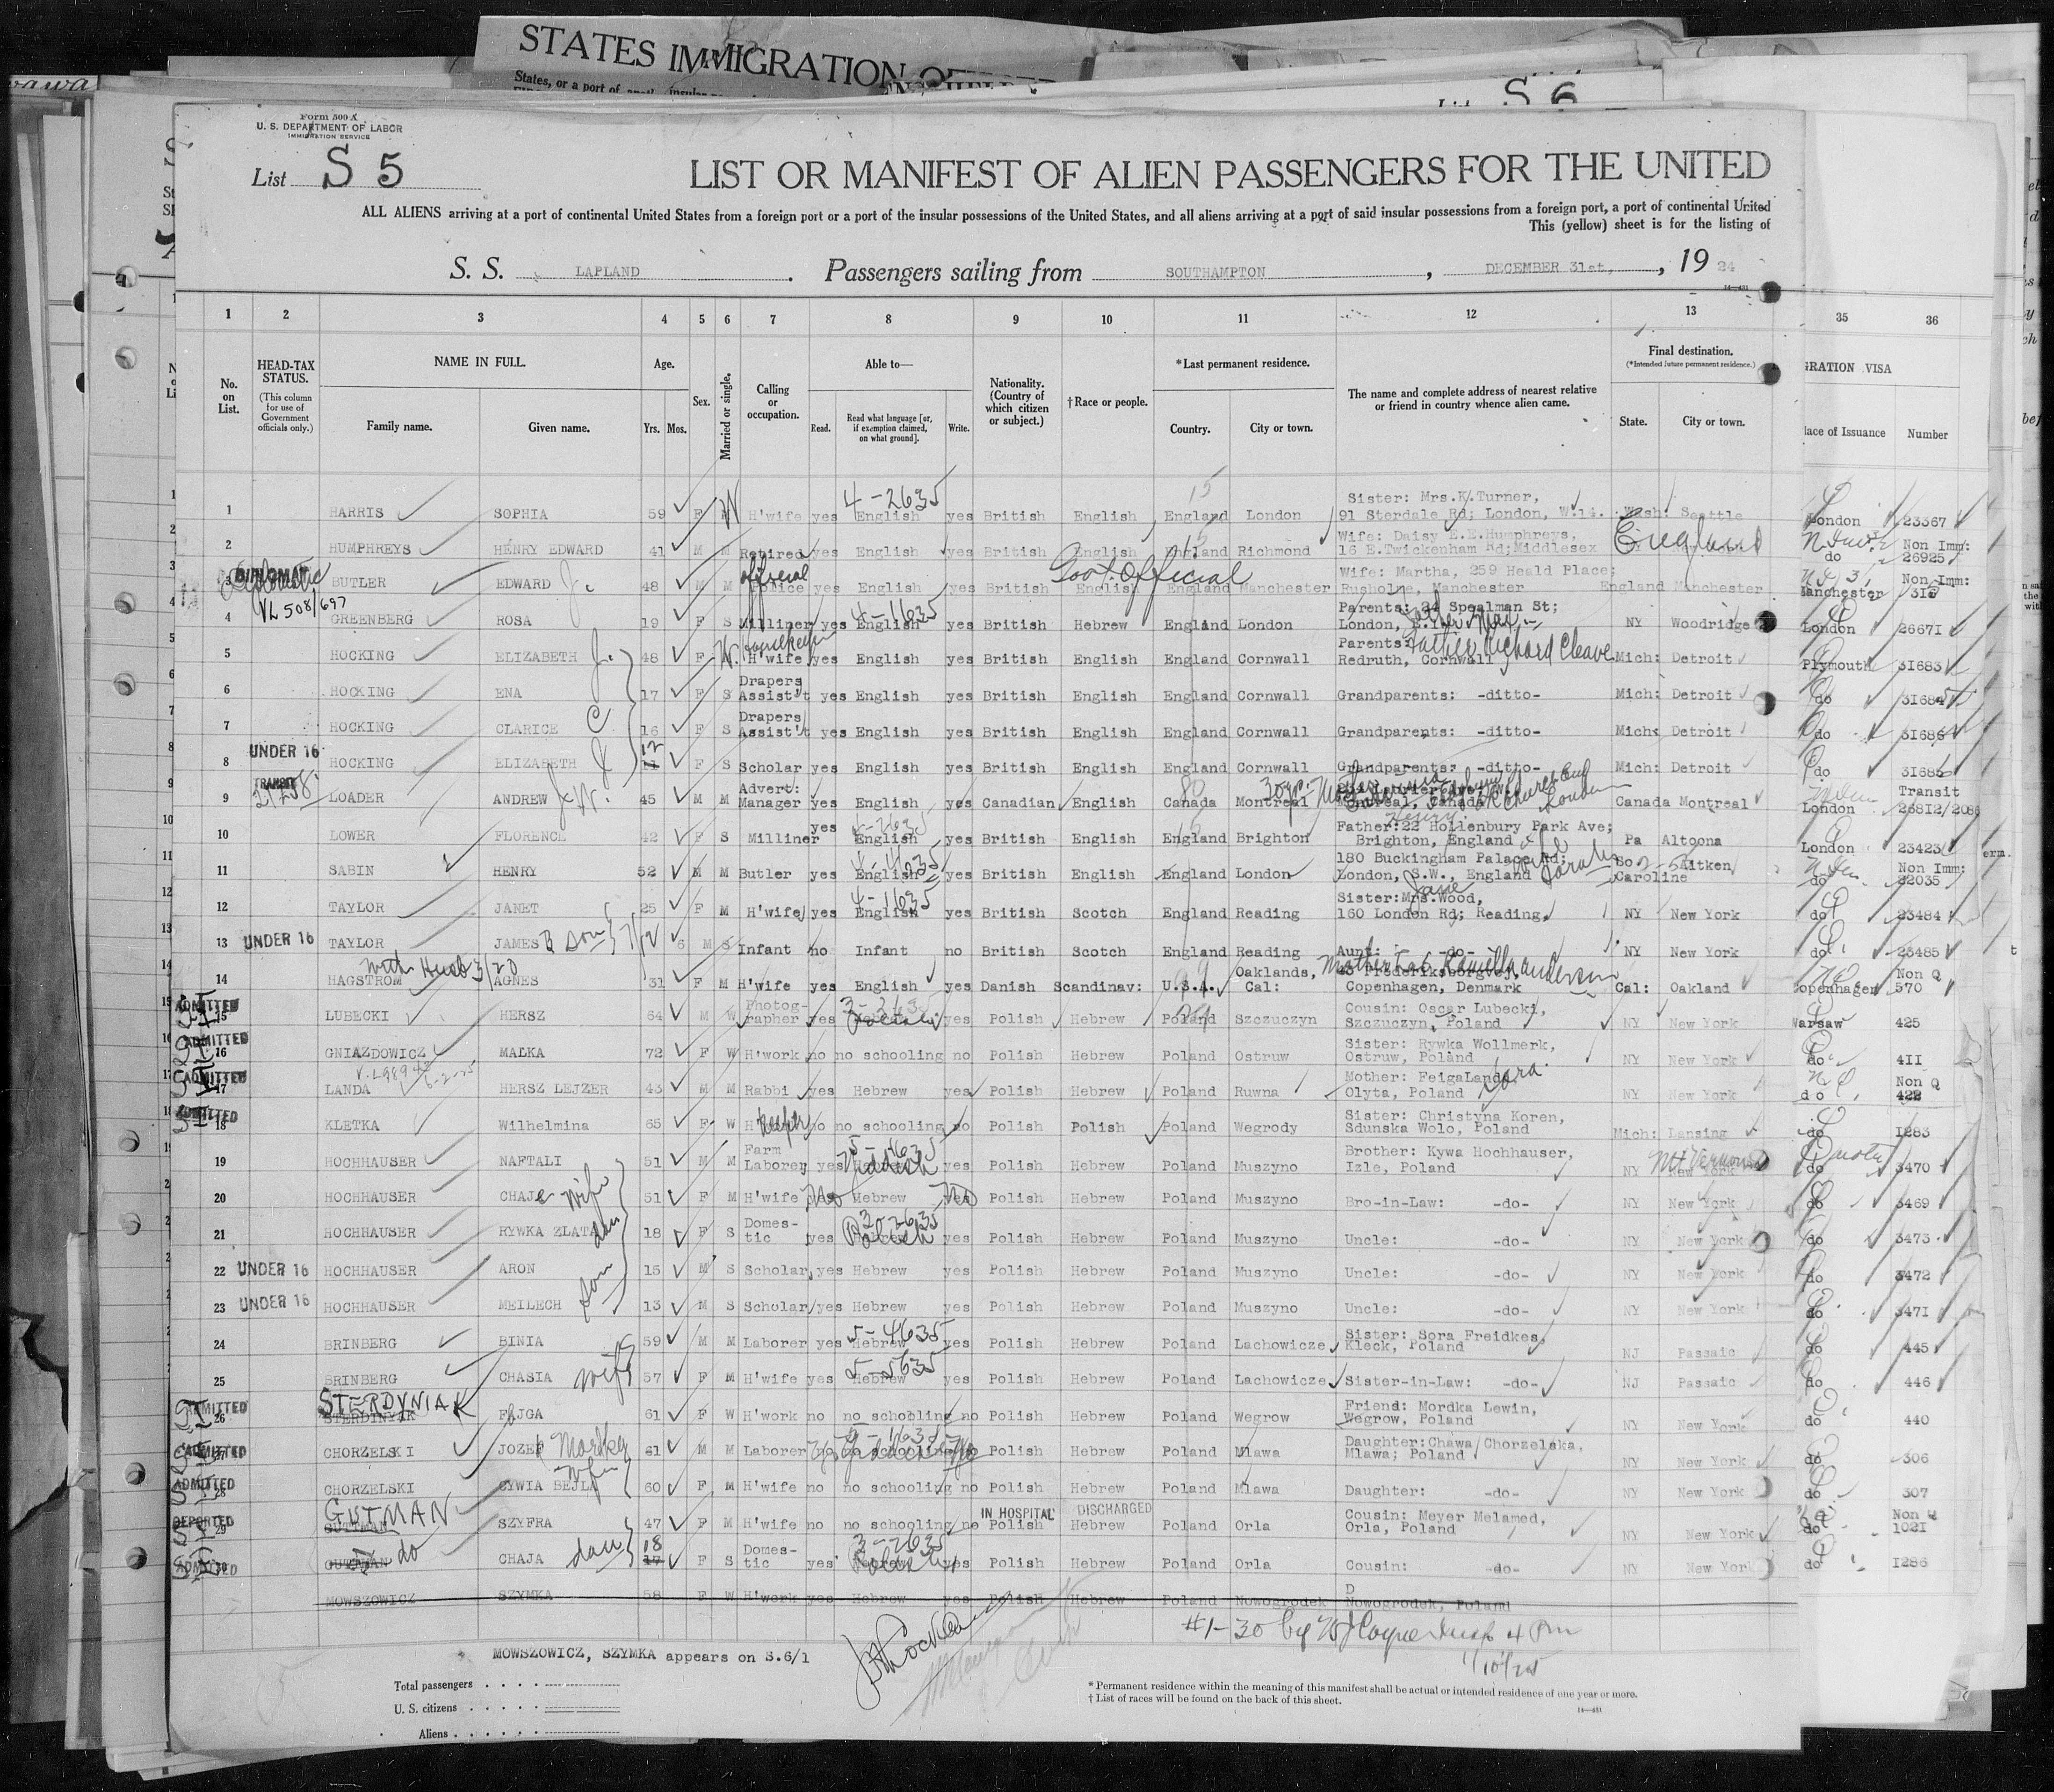 STATES IMMIGRATION
States, or a port of
S 6
Form 500 A
U. S. DEPARTMENT OF LABOR
IMMIGRATION SERVICE
List S 5
LIST OR MANIFEST OF ALIEN PASSENGERS FOR THE UNITED
ALL ALIENS arriving at a port of continental United States from a foreign port or a port of the insular possessions of the United States, and all aliens arriving at a port of said insular possessions from a foreign port, a port of continental United
This (yellow) sheet is for the listing of
S. S. LAPLAND. Passengers sailing from SOUTHAMPTON, DECEMBER 31st, , 19 24
1 2 3 4 5 6 7 8 9 10 11 12 13 35 36
No. on List. HEAD-TAX STATUS. (This column for use of Government officials only.) NAME IN FULL. Family name. Given name. Age. Yrs. Mos. Sex. Married or single. Calling or occupation. Able to— Read. Read what language [or, if exemption claimed, on what ground]. Write. Nationality. (Country of which citizen or subject.) † Race or people. *Last permanent residence. Country. City or town. The name and complete address of nearest relative or friend in country whence alien came. Final destination. (*Intended future permanent residence.) State. City or town. GRATION VISA lace of Issuance Number
1 HARRIS SOPHIA 59 F W H'wife yes English 4-2635 yes British English England London Sister: Mrs.K.Turner, 91 Sterdale Rd; London, W.14. Wash: Seattle London 23367
2 HUMPHREYS HENRY EDWARD 41 M M Retired yes English yes British English England Richmond Wife: Daisy E.E.Humphreys, 16 E.Twickenham Rd;Middlesex England do Non Imm: 26925
3 DIPLOMAT Diplomatic BUTLER EDWARD J. 48 M M official Police yes English yes British English Govt. Official England Manchester Wife: Martha, 259 Heald Place; Rusholme, Manchester England Manchester Manchester Non Imm: 316
4 VL 508/697 GREENBERG ROSA 19 F S Milliner yes English 4-1635 yes British Hebrew England London Parents: 24 Spealman St; London, NY Woodridge London 26671
5 HOCKING ELIZABETH J. 48 F W. housekeeper H'wife yes English yes British English England Cornwall Parents: father Richard Cleave Redruth, Cornwall Mich: Detroit Plymouth 31683
6 HOCKING ENA 17 F S Drapers Assist't yes English yes British English England Cornwall Grandparents: -ditto- Mich: Detroit do 31684
7 HOCKING CLARICE C 16 F S Drapers Assist't yes English yes British English England Cornwall Grandparents: -ditto- Mich: Detroit do 31686
8 UNDER 16 HOCKING ELIZABETH 12 F S Scholar yes English yes British English England Cornwall Grandparents: -ditto- Mich: Detroit do 31685
9 TRANSIT LOADER ANDREW W. 45 M M Advert: Manager yes English yes Canadian English Canada Montreal Montreal, Canada London Canada Montreal London Transit 26812/2086
10 LOWER FLORENCE 42 F S Milliner yes English yes British English England Brighton Henry Father:22 Hollenbury Park Ave; Brighton, England Pa Altoona London 23423
11 SABIN HENRY 52 M M Butler yes English 4-4635 yes British English England London 180 Buckingham Palace Rd; London, S.W., England wife Sarah So Caroline Aitken do Non Imm: 22035
12 TAYLOR JANET 25 F M H'wife yes English 4-1635 yes British Scotch England Reading Jane Sister:Mrs.Wood, 160 London Rd; Reading, NY New York do 23484
13 UNDER 16 TAYLOR JAMES B son 7/12 6 M S Infant no Infant no British Scotch England Reading Aunt: -do- NY New York do 23485
14 HAGSTROM with Husb 3/20 AGNES 31 F M H'wife yes English yes Danish Scandinav: U.S.A. Oaklands, Cal: Frederiksborgvej, Copenhagen, Denmark Cal: Oakland Copenhagen Non Q 570
15 ADMITTED LUBECKI HERSZ 64 M W Photographer yes yes Polish Hebrew Poland Szczuczyn Cousin: Oscar Lubecki, Szczuczyn, Poland NY New York Warsaw 425
16 ADMITTED GNIAZDOWICZ MALKA 72 F W H'work no no schooling no Polish Hebrew Poland Ostruw Sister: Rywka Wollmerk, Ostruw, Poland NY New York do 411
17 ADMITTED LANDA HERSZ LEJZER 43 M M Rabbi yes Hebrew yes Polish Hebrew Poland Ruwna Mother: FeigaLanda, Olyta, Poland NY New York do Non Q 422
18 ADMITTED KLETKA Wilhelmina 65 F W no no schooling no Polish Polish Poland Wegrody Sister: Christyna Koren, Sdunska Wolo, Poland Mich: Lansing do 1283
19 HOCHHAUSER NAFTALI 51 M M Farm Laborer yes Yiddish Polish Hebrew Poland Muszyno Brother: Kywa Hochhauser, Izle, Poland NY New York Mt Vernon do 3470
20 HOCHHAUSER CHAJE wife 51 F M H'wife No Hebrew No Polish Hebrew Poland Muszyno Bro-in-Law: -do- NY New York do 3469
21 HOCHHAUSER RYWKA ZLATA dau 18 F S Domestic yes Polish yes Polish Hebrew Poland Muszyno Uncle: -do- NY New York do 3473
22 UNDER 16 HOCHHAUSER ARON 15 M S Scholar yes Hebrew yes Polish Hebrew Poland Muszyno Uncle: -do- NY New York do 3472
23 UNDER 16 HOCHHAUSER MEILECH son 13 M S Scholar yes Hebrew yes Polish Hebrew Poland Muszyno Uncle: -do- NY New York do 3471
24 BRINBERG BINIA 59 M M Laborer yes Hebrew 5-4635 yes Polish Hebrew Poland Lachowicze Sister: Sora Freidkes, Kleck, Poland NJ Passaic do 445
25 BRINBERG CHASIA wife 57 F M H'wife yes Hebrew 5-5635 yes Polish Hebrew Poland Lachowicze Sister-in-Law: -do- NJ Passaic do 446
26 ADMITTED STERDYNIAK STERDINYAK FAJGA 61 F W H'work no no schooling no Polish Hebrew Poland Wegrow Friend: Mordka Lewin, Wegrow, Poland NY New York do 440
27 ADMITTED CHORZELSKI JOZEF Mordka 61 M M Laborer no schooling Polish Hebrew Poland Mlawa Daughter:Chawa Chorzelska, Mlawa; Poland NY New York do 306
28 ADMITTED CHORZELSKI CYWIA BEJLA wife 60 F M H'wife no no schooling no Polish Hebrew Poland Mlawa Daughter: -do- NY New York do 307
29 DEPORTED GUTMAN GUTTMAN SZYFRA 47 F M H'wife no no schooling no Polish IN HOSPITAL Hebrew DISCHARGED Poland Orla Cousin: Meyer Melamed, Orla, Poland NY New York do Non Q 1021
30 ADMITTED GUTMAN do CHAJA dau 18 17 F S Domestic yes 3-2635 yes Polish Hebrew Poland Orla Cousin: -do- NY New York do 1286
MOWSZOWICZ SZYMKA 58 F W H'work yes Hebrew yes Polish Hebrew Poland Nowogrodek Nowogrodek, Poland
#1-30 by Insp 4 Pm
1/10/25
MOWSZOWICZ, SZYMKA appears on S.6/1
Total passengers
U. S. citizens
Aliens
* Permanent residence within the meaning of this manifest shall be actual or intended residence of one year or more.
† List of races will be found on the back of this sheet.
14—431